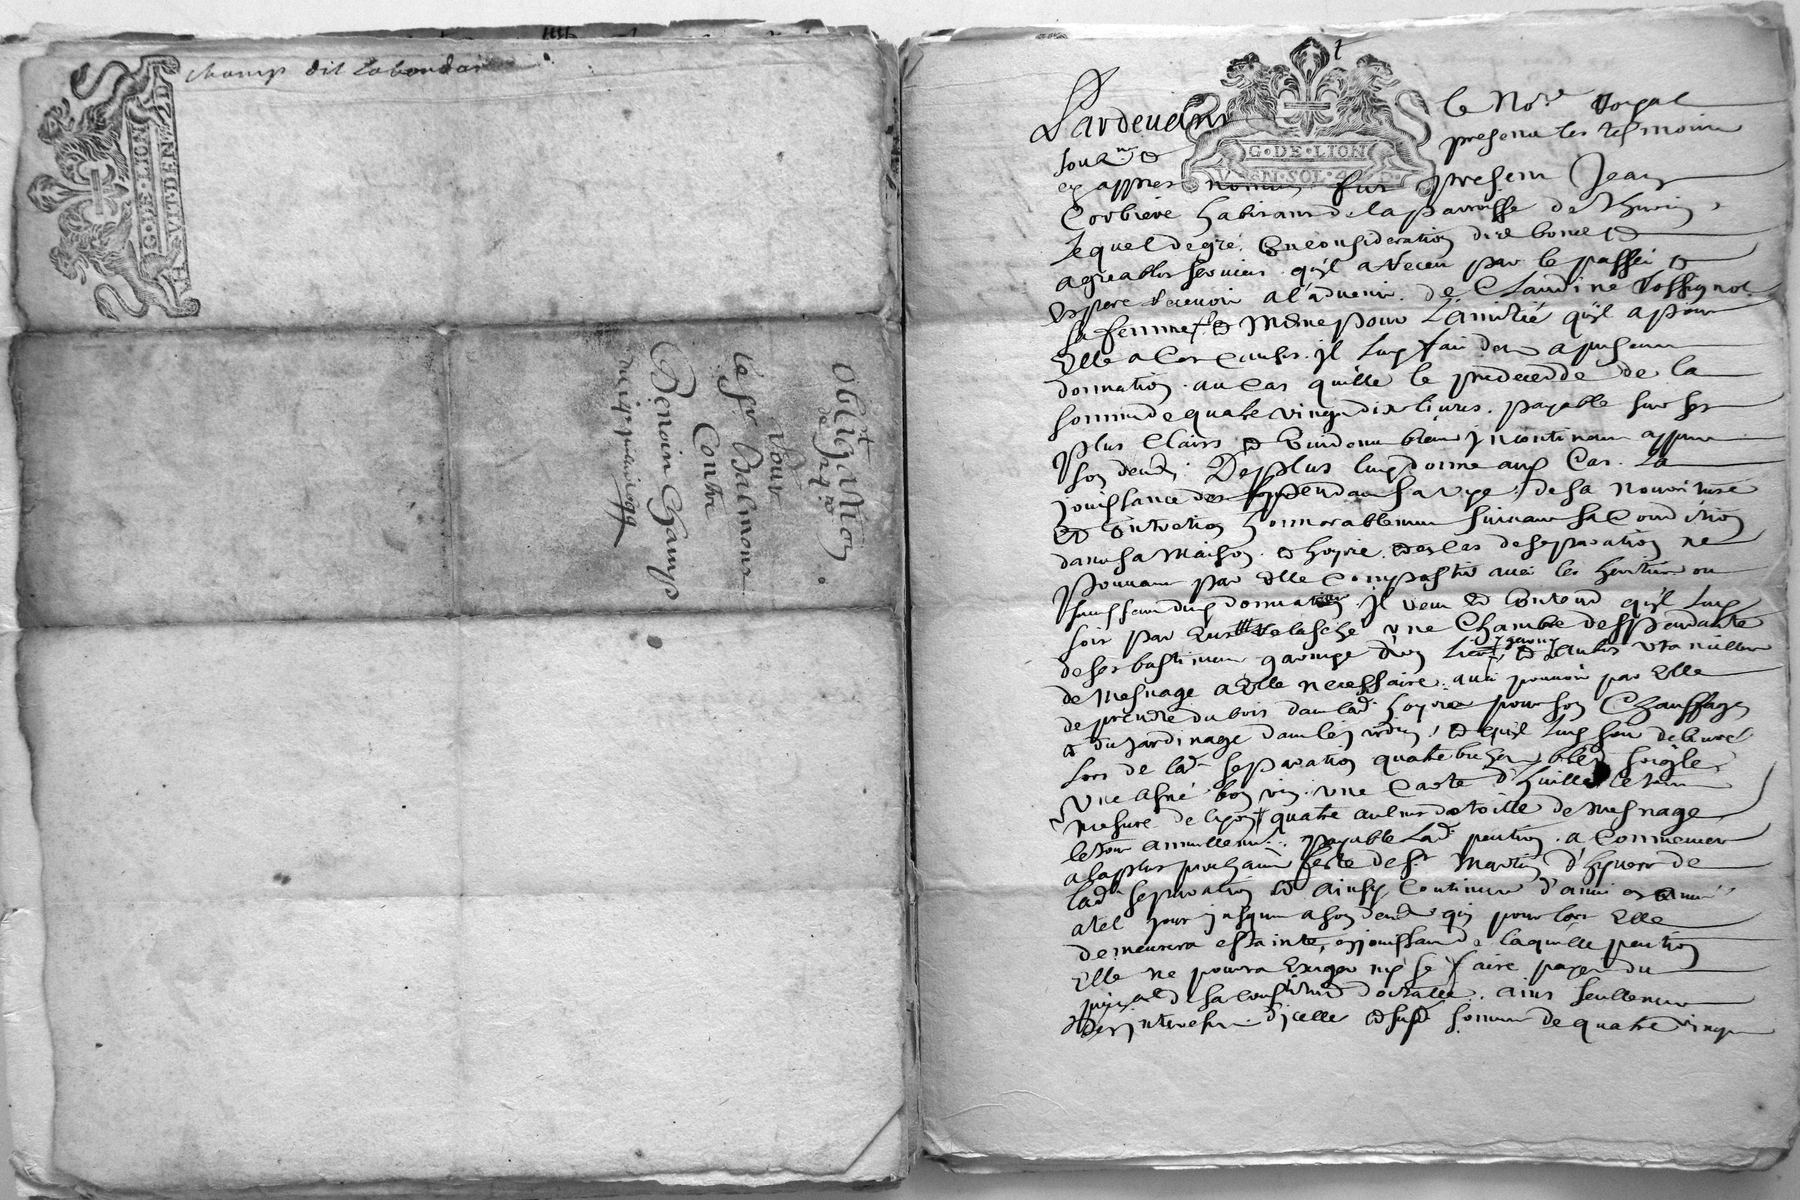 champ dit Labondas
G·DE·LION
VIII·DEN
Obligation
de 24 tt
Pour
le Sr Balmont
Contre
Benoin Champ
G·DE·LION
SOL·4·D
Pardevant le No.re Royal
soub.né & presens les tesmoins
ey appres nommes fut present Jean
Corbiere habitant de la parroisse de Thurin
Lequel de gré en consideration des bons et
agreables services qu'il a Receu par le passé et
espere Recevoir a l'advenir de Claudine Rossignol
sa femme & mesme pour L'amitié qu'il a pour
Elle a ces causes il luy fait don a present
donnation au cas qu'elle le predecede de la
somme de quatre vingt dix livres payable sur ses
plus Clairs et biens incontinent appres
son decedz De plus luy donne aud Cas La
jouissance des pendant sa vye de sa nouriture
et entretien honnorablement suivant sa Condition
dans sa maison & hoyrie et en cas de separation ne
pouvant par elle compastir avec les heritiers ou
dud donnateur il veut et entend qu'il luy
soit par eux Relasché une Chambre deppendante
de ses bastiments garnye d'un Lict garny & autres utancilles
de mesnage a elle necessaire avec pouvoir par elle
de prendre du bois dans lad hoyrie pour son Chauffage
& du jardinage dans les jardins & qu'il luy soit delivré
Lors de lad separation quatre bled soigle
une asné bon vin une Carte d'huille le tout
mesure de Lyon quatre aulnes de toille de mesnage
le tout annuellement payable Lad pention a Commencer
a la plus prochaine feste de St Martin d'hyver de
lad separation et ainsy Continuer d'année en année
a tel jour jusques a son decedz qui pour lors Elle
demeurera estainte, en jouissant de laquelle pention
Elle ne pourra Exiger ny se faire payer du
de sa constitution dotalle ains seullement
des interests d'icelle & susd somme de quatre vingt